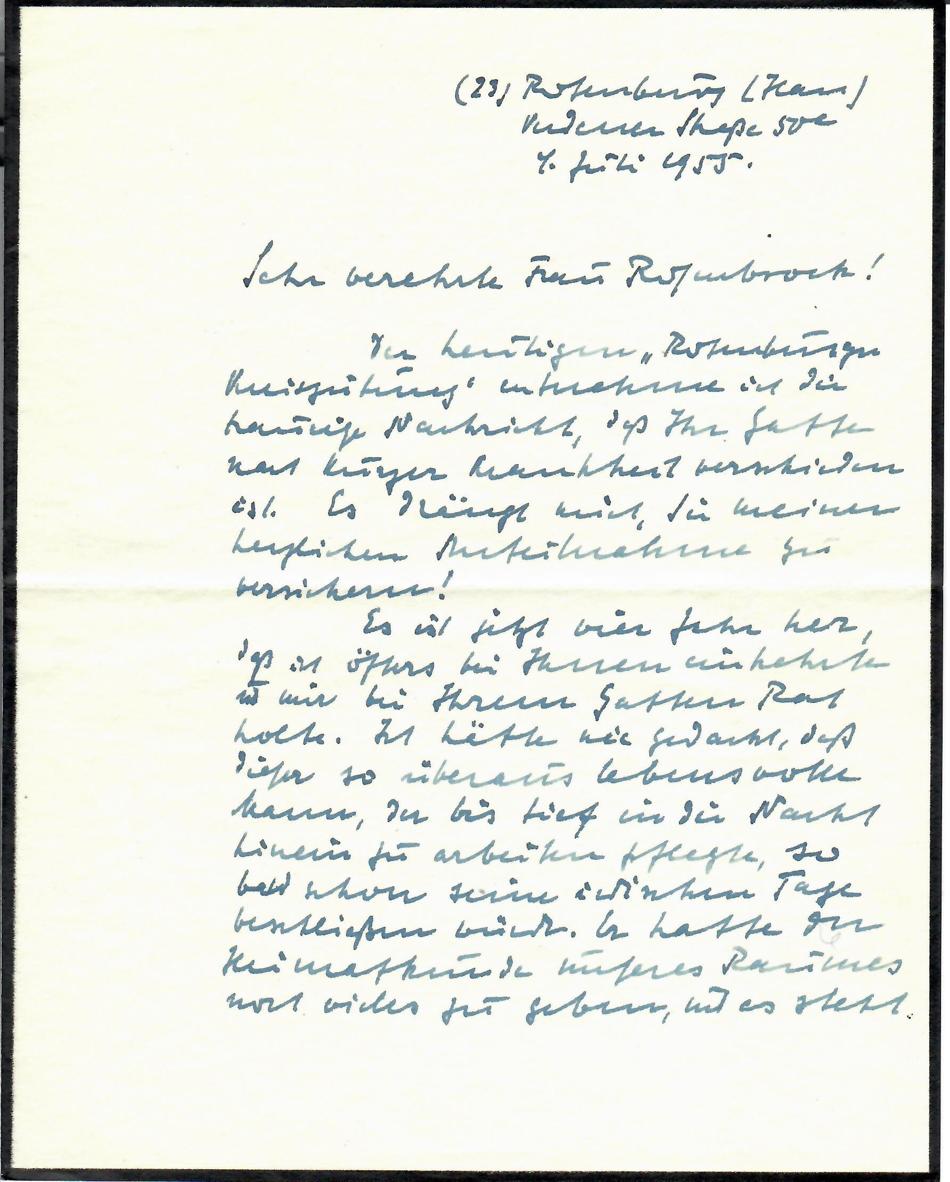 (23) Rotenburg (Han)
Verdener Straße 50a
4. Juli 1955.
Sehr verehrte Frau Rosenbrock!
Der heutigen „Rotenburger
Kreiszeitung" entnehme ich die
traurige Nachricht, daß Ihr Gatte
nach kurzer Krankheit verschieden
ist. Es drängt mich, Sie meiner
herzlichen Anteilnahme zu
versichern!
Es ist jetzt vier Jahre her,
daß ich öfters bei Ihnen einkehrte
u mir bei Ihrem Gatten Rat
holte. Ich hätte nie gedacht, daß
dieser so überaus lebensvolle
Mann, der bis tief in die Nacht
hinein zu arbeiten pflegte, so
bald schon seine irdischen Tage
beschließen würde. Er hatte der
Heimatkunde unseres Raumes
noch vieles zu geben, und es steht